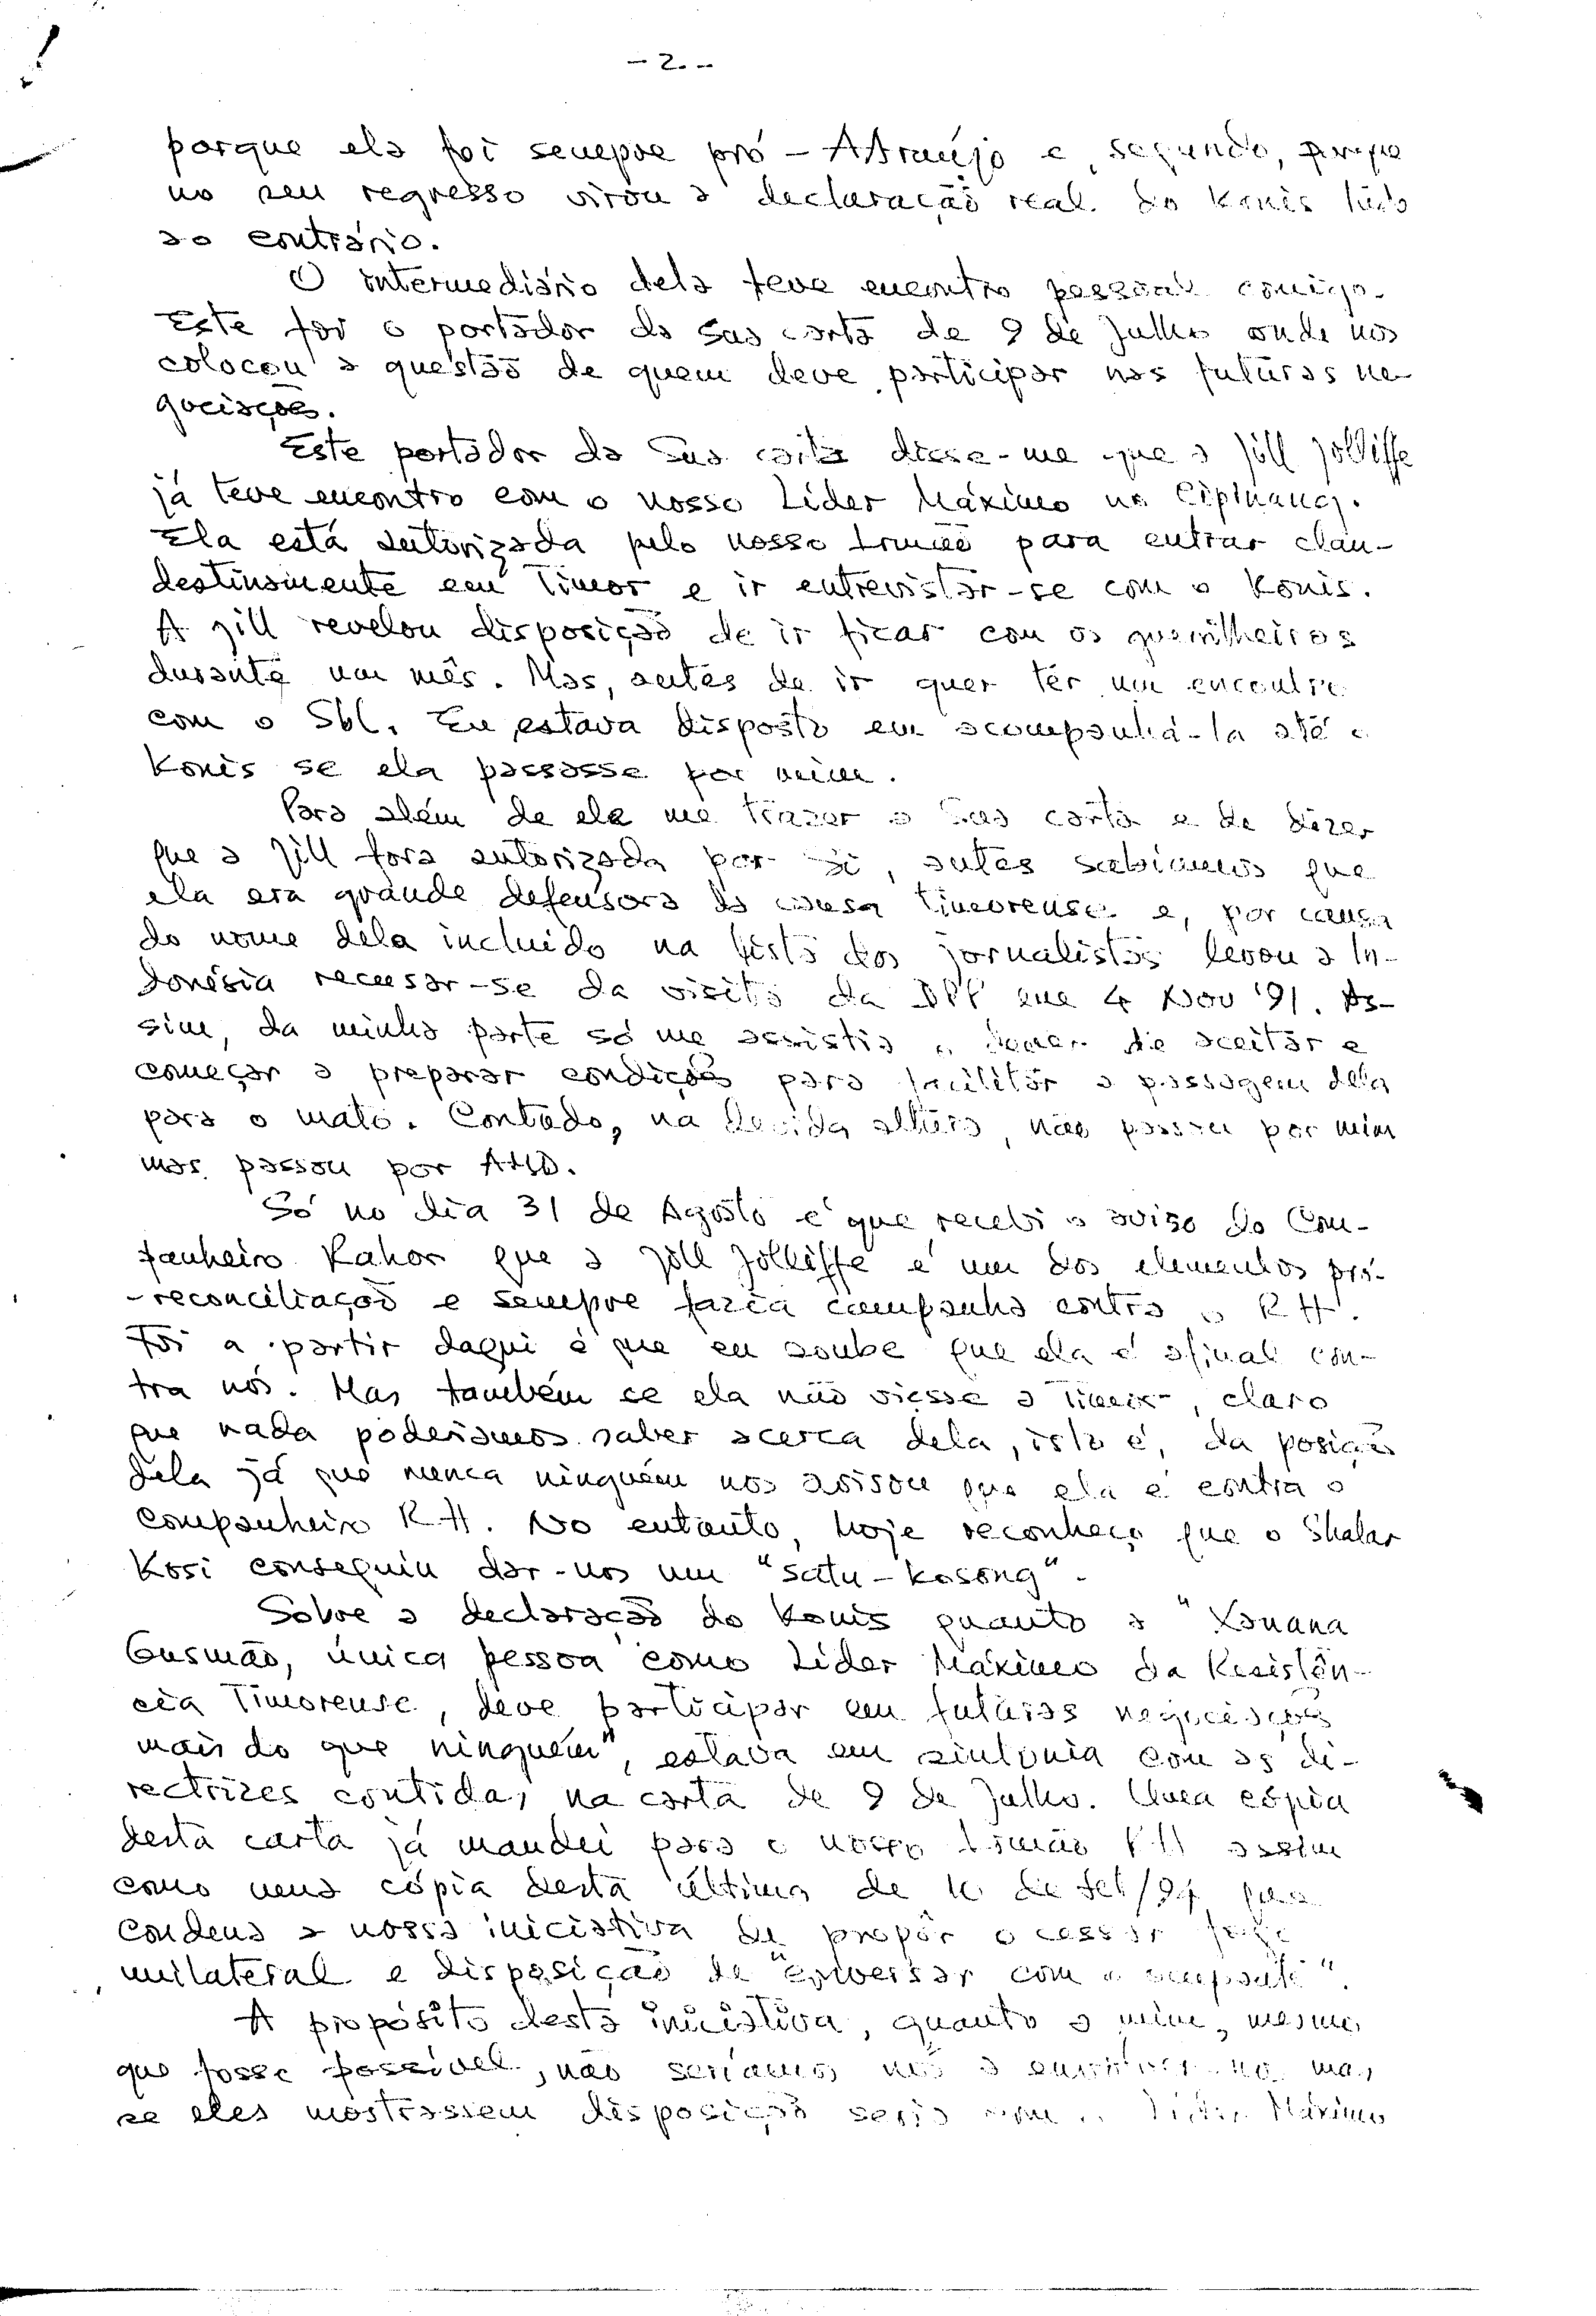 - 2. -
porque ela foi sempre pró - AAraújo e, segundo, porque
no seu regresso virou a declaração real do Konis tudo
ao contrário.
O intermediário dela teve encontro pessoal comigo.
Este foi o portador da sua carta de 9 de Julho onde nos
colocou a questão de quem deve participar nas futuras ne-
gociações.
Este portador da sua carta disse-me que a Jill Jolliffe
já teve encontro com o nosso Líder Máximo na Cipinang.
Ela está autorizada pelo nosso Irmão para entrar clan-
destinamente em Timor e ir entrevistar-se com o Konis.
A Jill revelou disposição de ir ficar com os guerrilheiros
durante um mês. Mas, antes de ir quer ter um encontro
com o Sbl. Eu estava disposto em acompanhá-la até o
Konis se ela passasse por mim.
Para além de ele me trazer a sua carta e de dizer
que a Jill fora autorizada por si, antes sabíamos que
ela era grande defensora da causa timorense e, por causa
do nome dela incluído na lista dos jornalistas levou a In-
donésia recusar-se da visita da DPP em 4 Nov '91. As-
sim, da minha parte só me assistia o dever de aceitar e
começar a preparar condições para facilitar a passagem dela
para o mato. Contudo, na devida altura, não passou por mim
mas passou por
Só no dia 31 de Agosto é que recebi o aviso do Com-
panheiro Kahor que a Jill Jolliffe é um dos elementos pró-
-reconciliação e sempre fazia campanha contra o RH.
Foi a partir daqui é que eu soube que ela é afinal con-
tra nós. Mas também se ela não viesse a Timor, claro
que nada poderíamos saber acerca dela, isto é, da posição
dela já que nunca ninguém nos avisou que ela é contra o
companheiro RH. No entanto, hoje reconheço que o Shalar
Kosi conseguiu dar-nos um "satu-kosong".
Sobre a declaração do Konis quanto a "Xanana
Gusmão, única pessoa como Líder Máximo da Resistên-
cia Timorense, deve participar em futuras negociações
mais do que ninguém", estava em sintonia com as di-
rectrizes contidas na carta de 9 de Julho. Uma cópia
desta carta já mandei para o nosso Irmão RH assim
como uma cópia desta última de 10 de Set/94 que
condena a nossa iniciativa de propôr o cessar fogo
unilateral e disposição de "conversar com o ocupante".
A propósito desta iniciativa, quanto a mim, mesmo
que fosse possível, não seríamos nós a mas
se eles mostrassem disposição seria com o Líder Máximo